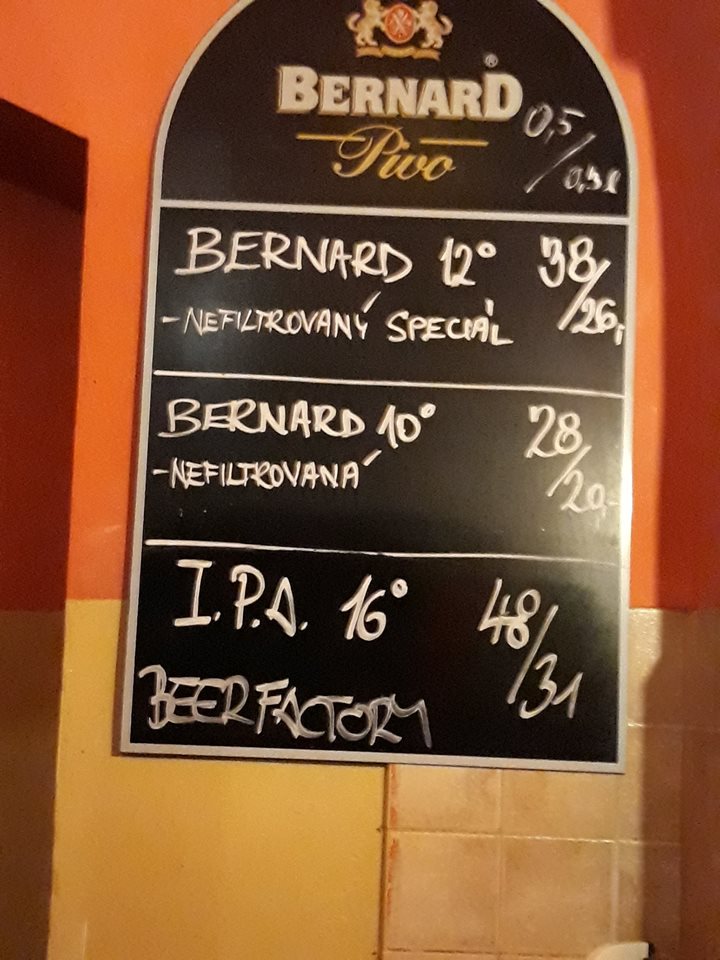 BERNARD®
Pivo
0,5/0,3l
BERNARD 12° 38/26,-
-NEFILTROVANÝ SPECIÁL
BERNARD 10° 28/20,-
-NEFILTROVANÁ
I.P.A. 16° 48/31
BEER FACTORY